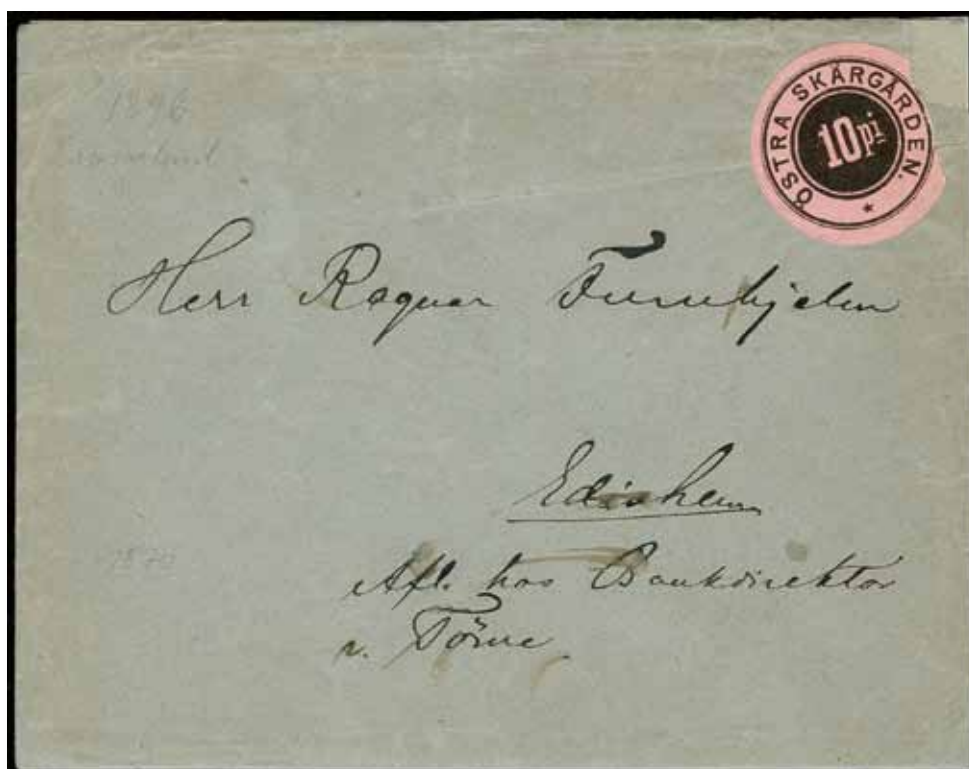 1896
ÖSTRA SKÄRGÅRDEN.
10 pi
Herr Ragnar Furuhjelm
Edisheim
Afl. hos Bankdirektör
v. Törne